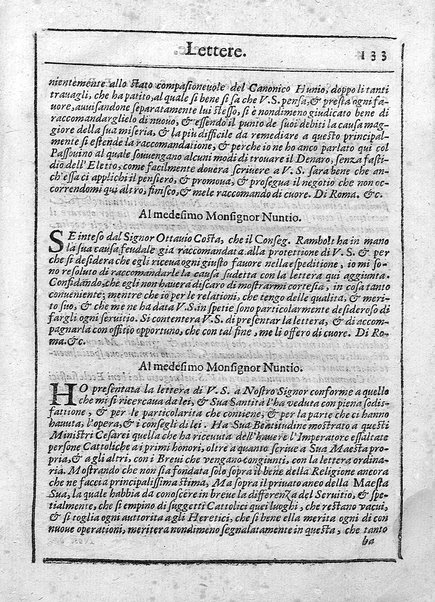 Lettere.
133
nientemente allo stato compasioneuole del Canonico Hunio, doppo li tanti
trauagli, che ha patito, al quale si bene si sa che V.S. pensa, & presta ogni fa-
uore, auuisandone separatamente lui stesso, si è nondimeno giudicato bene di
raccomandarglielo di nuouo, & essendo il punto de suoi debiti la causa mag-
giore della sua miseria, & la più difficile da remediare a questo principalmen-
te si estende la raccomandatione, & perche io ne ho anco parlato qui col
Passonino al quale souuengano alcuni modi di trouare il Denaro, senza fasti-
dio dell'Eletto, come facilmente douera scriuere a V.S. sara bene che an-
ch'essa ci applichi il pensiero, & promoua, & prosegua il negotio che non oc-
correndomi qui altro, finisco, & mele raccomando di cuore. Di Roma. &c.
Al medesimo Monsignor Nuntio.
SE inteso dal Signor Ottauio Costa, che il Conseg. Rambolt ha in mano
la sua causa feudale gia raccomandata alla protettione di V.S. & per
che si desidera che egli riceua ogni giusto fauore nella espeditione, io mi so-
no resoluto di raccomandarle la causa sudetta con la lettera qui aggiunta.
Confidando, che egli non hauera discaro di mostrarmi cortesia, in cosa tanto
conueniente; mentre che io per le relationi, che tengo delle qualità, & meri-
to suo, & che me ne ha data V.S. in spetie sono particolarmente desideroso di
fargli ogni seruitio. Si contentera V.S. di presentar la lettera, & di accom-
pagnarla con offitio opportuno, che con tal fine, me li offero di cuore. Di Ro-
ma. &c.
Al medesimo Monsignor Nuntio.
HO presentata la lettera di V.S. a Nostro Signor conforme a quello
che mi si ricercaua da lei, & Sua Santità l'ha veduta con piena sodis-
fattione, & per le particolarita che contiene, & per la parte che ci hanno
hauuta, l'opera, & i consegli de lei. Ha Sua Beatitudine mostrato a questi
Ministri Cesarei quella che ha riceuuta dell'hauere l'Imperatore essaltate
persone Cattoliche ai primi honori, oltre a quanto scriue a Sua Maesta pro-
pria, & a gli altri, con i Breui che vengano congiunti, con la lettera ordina-
ria. Mostrando che non sia fondata solo sopra il bene della Religione ancora
che ne facei a principalissima stima, Ma sopra il priuato aneo della Maesta
Sua, la quale habbia da conoscere in breue la differenza del Seruitio, & spe-
tialmente, che si empino di suggetti Cattolici quei luoghi, che restano vacui,
& si toglia ogni autorita agli Heretici, che si bene ella merita ogni di con
nuoue operationi, meritera nondimeno segnalatamente in questo, che tanto
ba